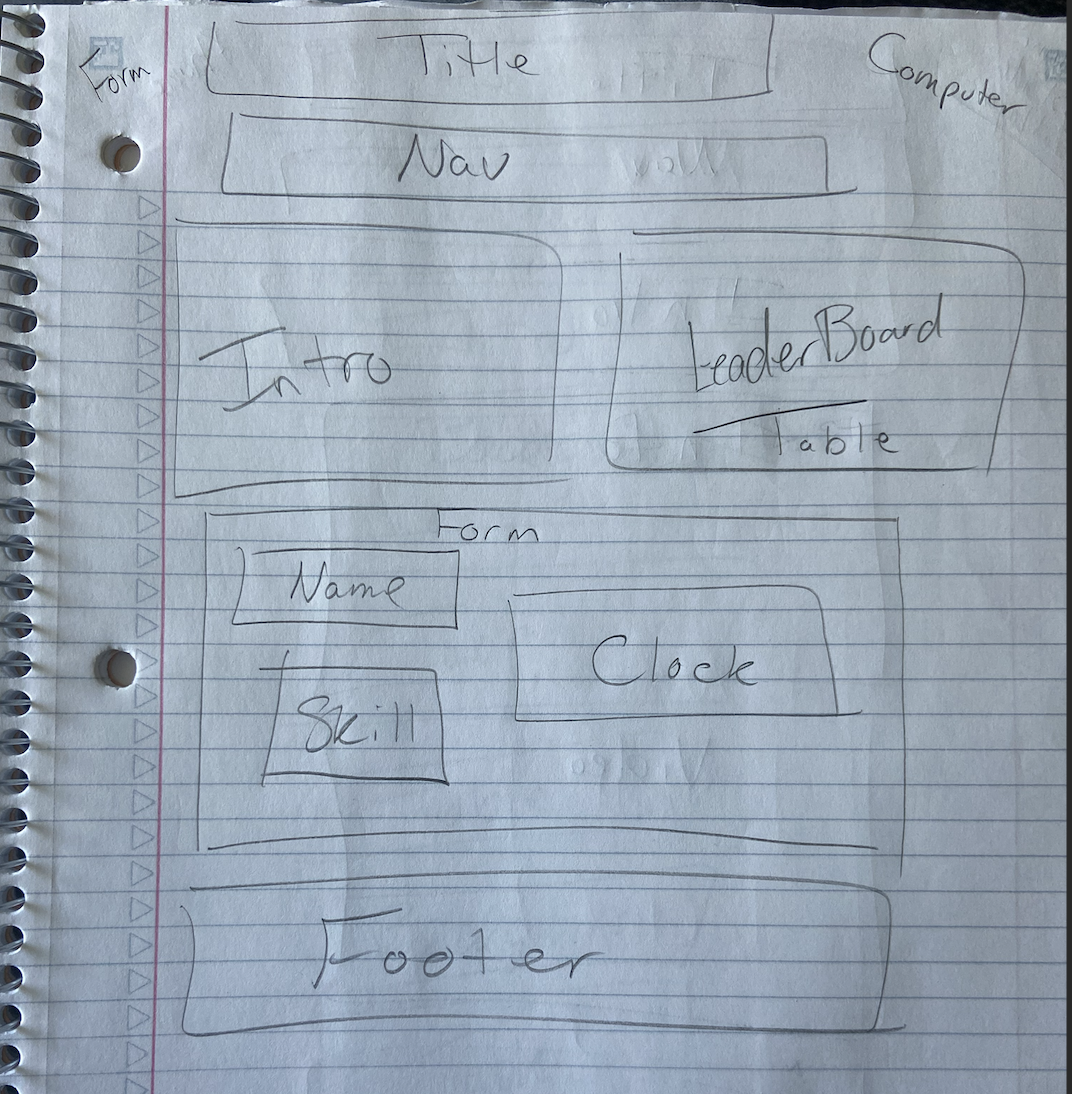 Form
Title
Computer
Nav
Intro
LeaderBoard
Table
Form
Name
Clock
Skill
Footer